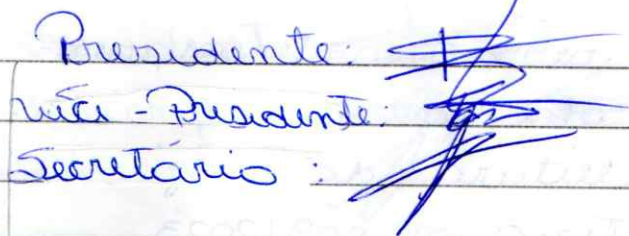 Presidente:
vice - Presidente:
Secretário :